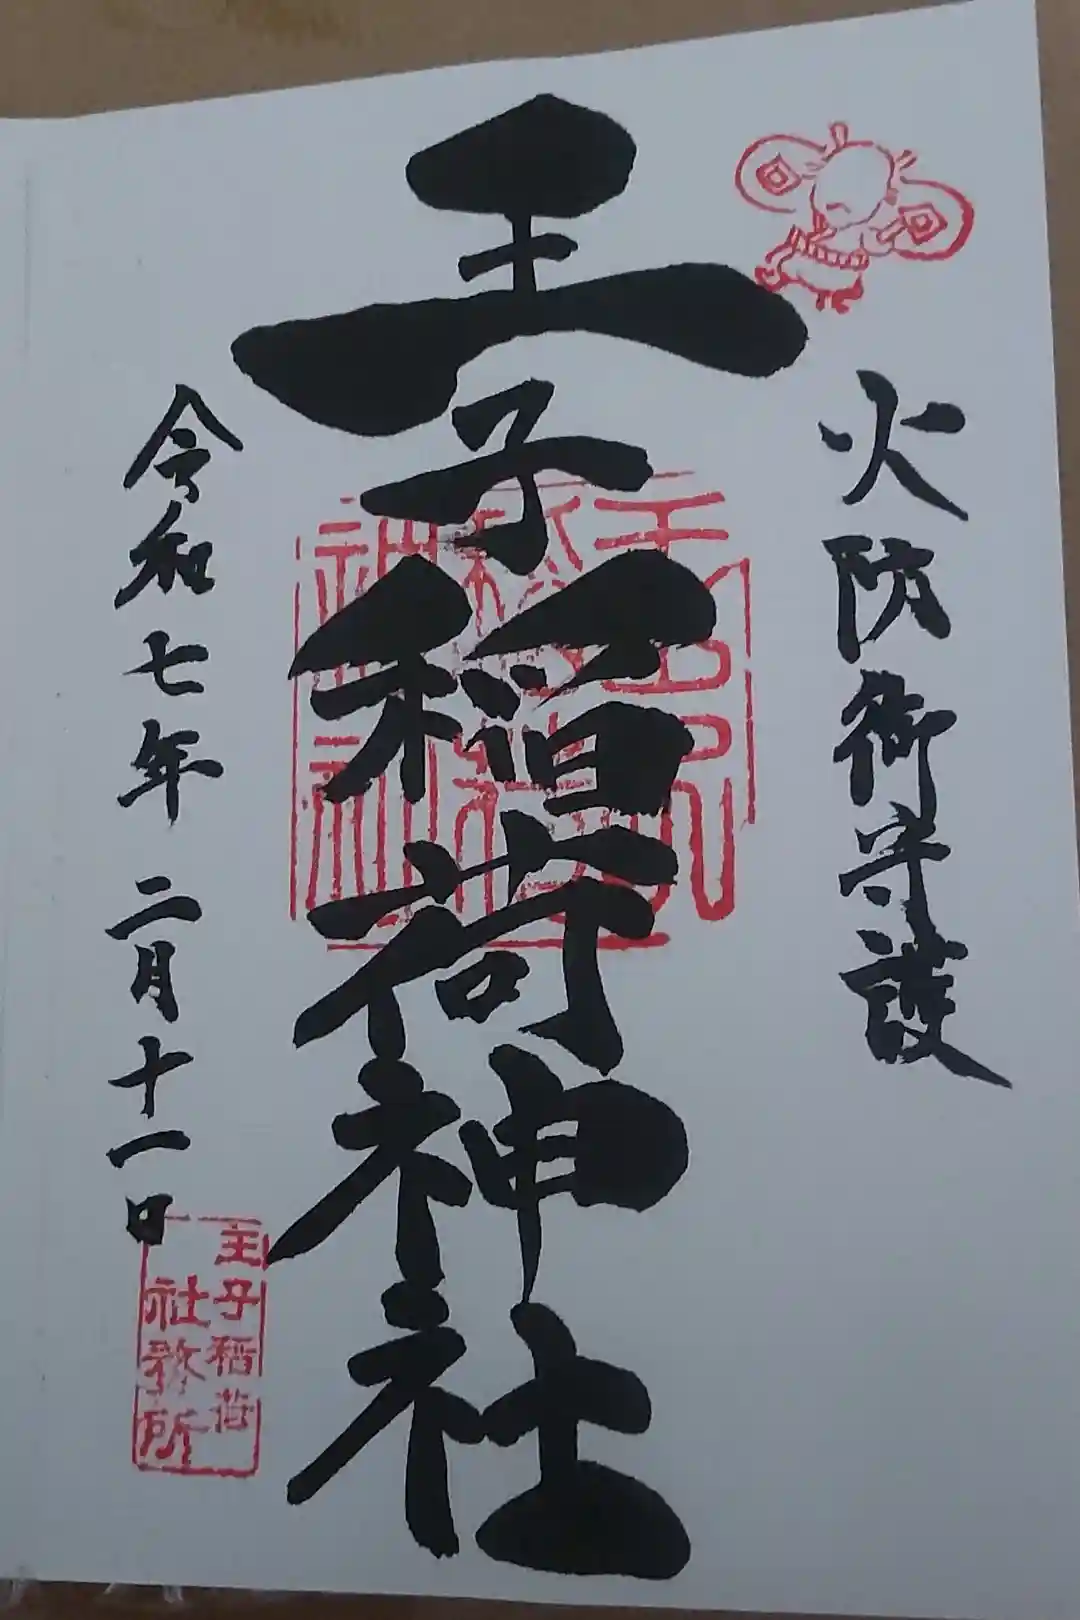 火防御守護
王子稲荷神社
王子
稲荷
神社
令和七年 二月十一日
王子稲荷
社務所